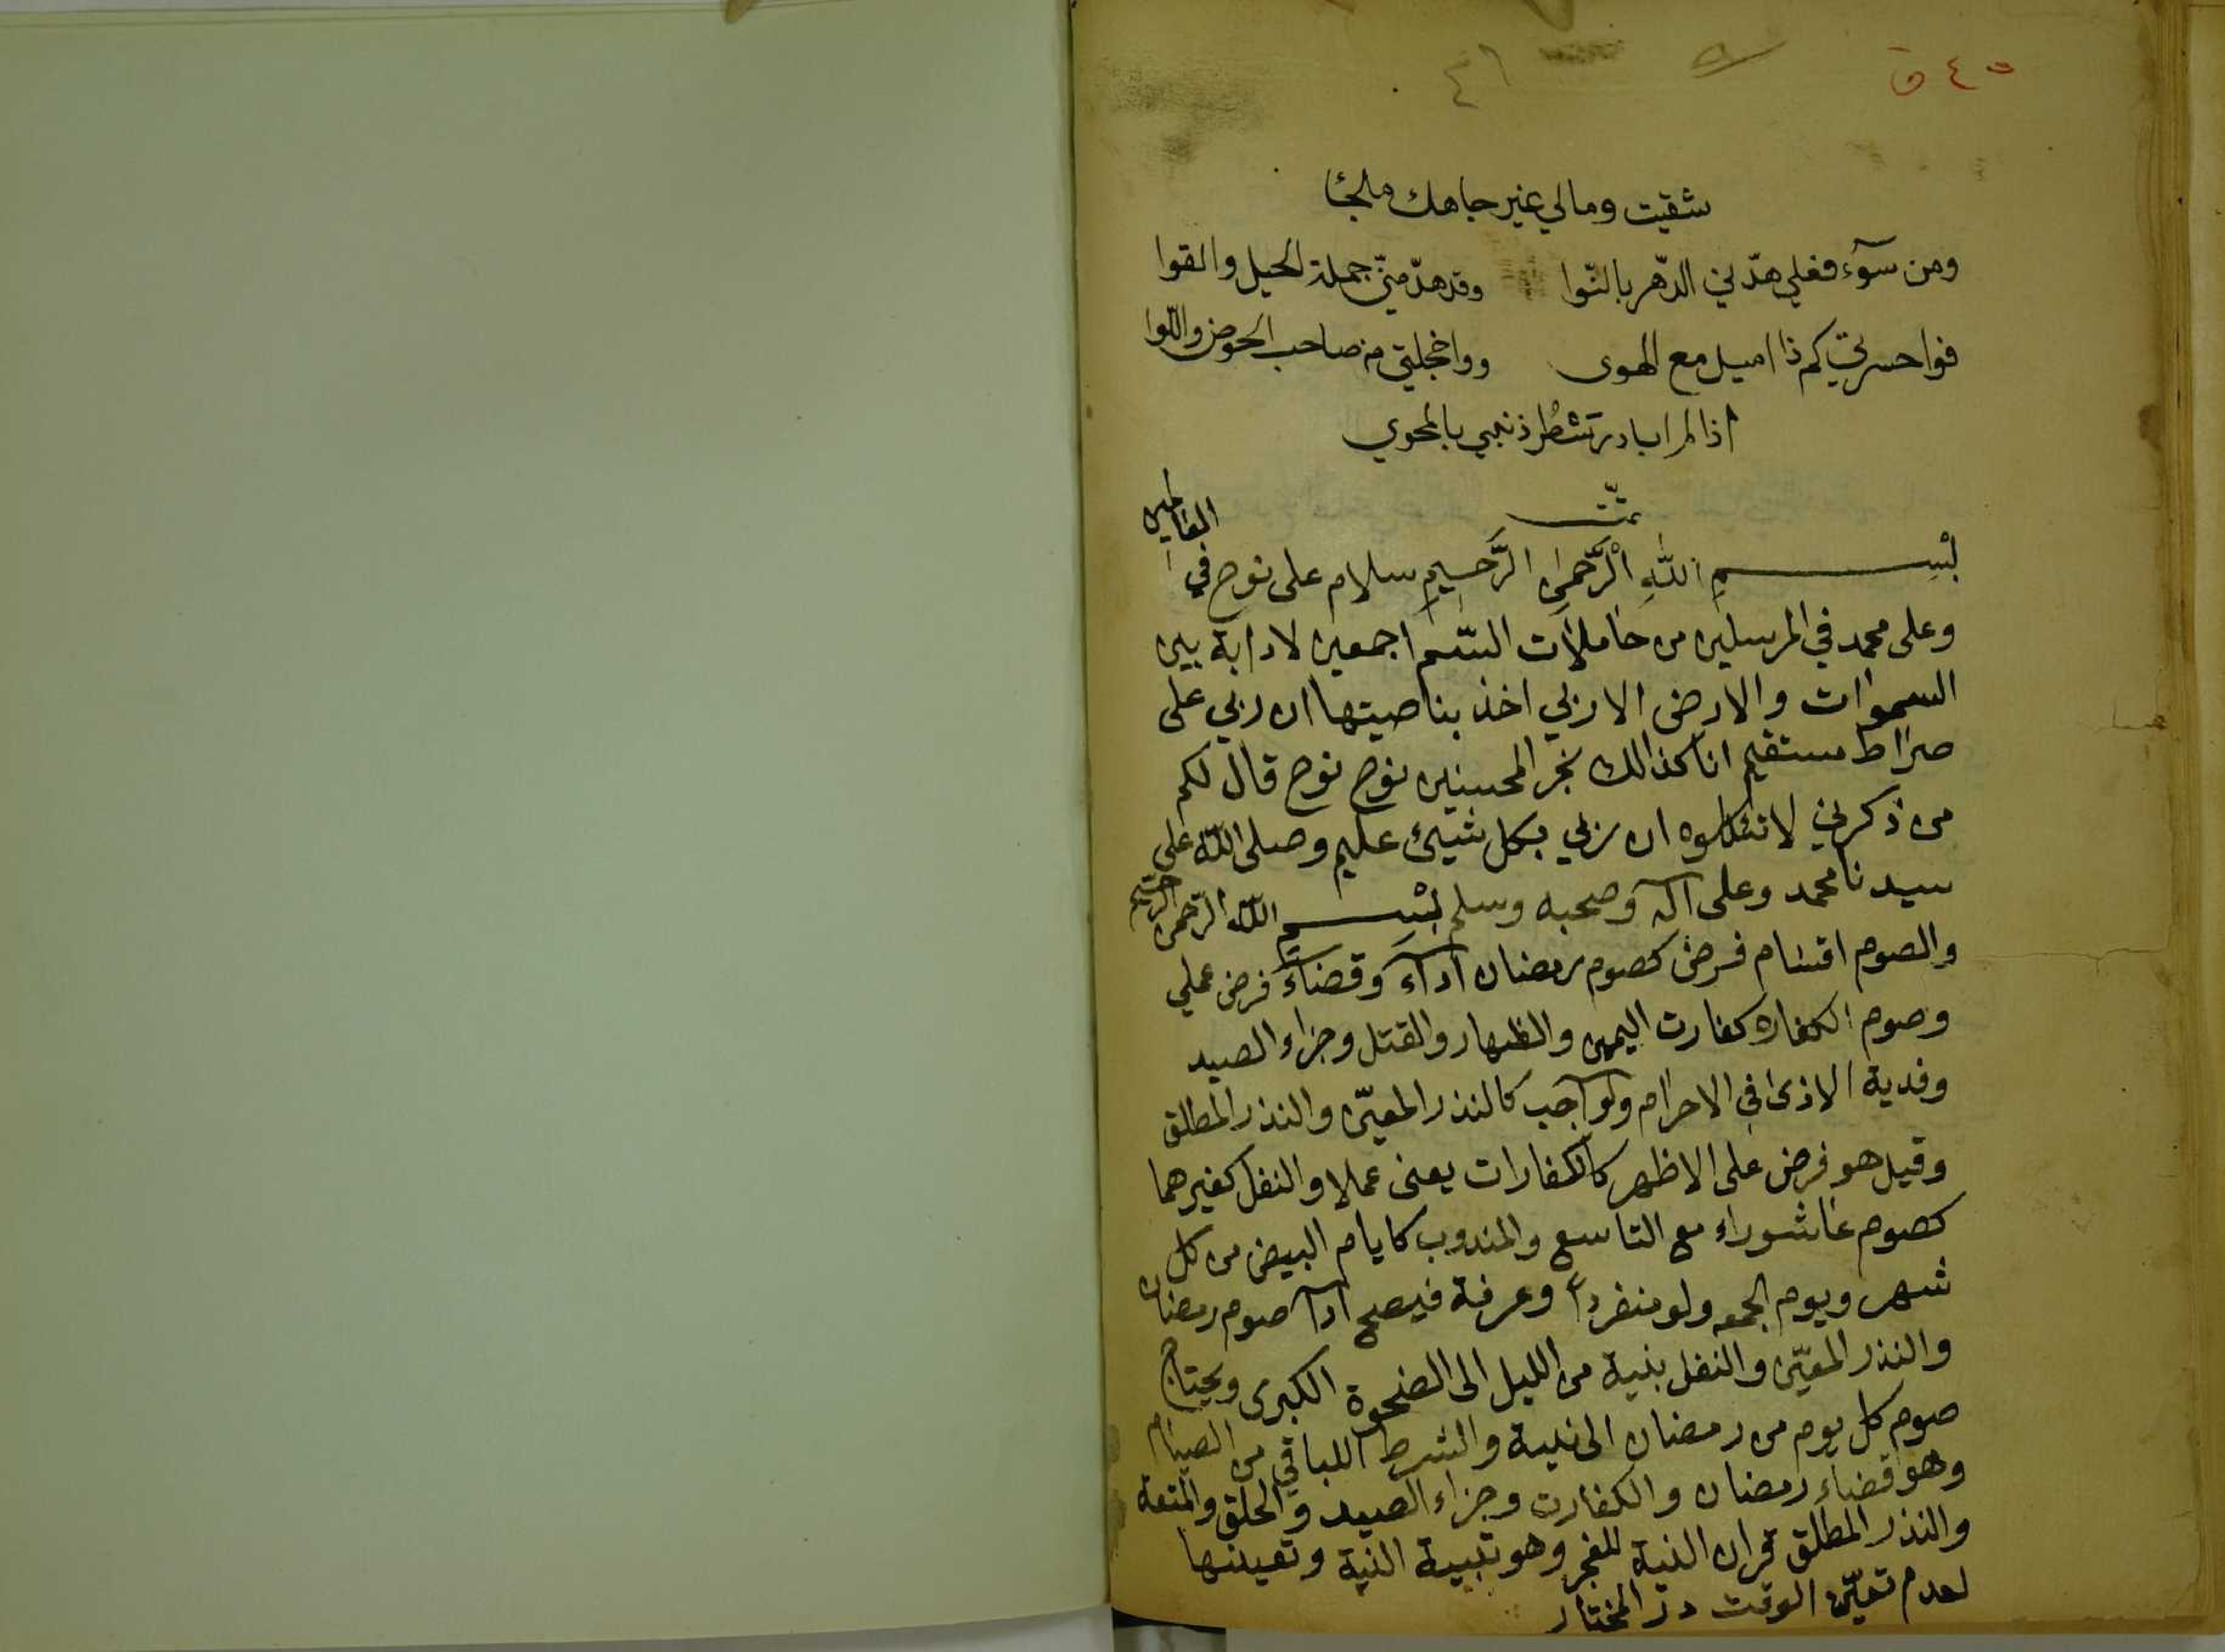 ٤٥ ق
٤٦
شقيت ومالي غير جاهك ملجئا
ومن سوٓء فعلي هدّني الدّهر بالنّوا وقد هدّ منّي جملة الحيل والقوا
فوا حسرتي كم ذا اميل مع الهوى وواخجلتي من صاحب الحوض واللّوا
اذا لم ابادر تشطر ذنبي بالمحوي
تمّت
بْسِمِ اللّٰهِ الْرَّحمٰنِ الرَّحسيمِ سلام على نوح في العالمين
وعلى محمد في المرسلين من حاملات السّم اجمعين لا دابة بين
السموات والارض الا ربي اخذ بناصيتها ان ربي على
صراط مستقيم انا كذالك نجز المحسنين نوح نوح قال لكم
من ذكرني لا تاكلوه ان ربي بكل شيئ عليم وصلى اللّه على
سيدنا محمد وعلى آله وصحبه وسلم بْسِمِ اللّه الرّحمن الرّحيم
والصوم اقسام فرض كصوم رمضان ادآء وقضآء فرض عملي
وصوم الكفاره كفارت اليمين والظهار والقتل وجزاء الصيد
وفدية الاذى في الاحرام ولواجب كالنذر المعيّن والنذر المطلق
وقيل هو فرض على الاظهر كالكفارات يعنى عملا والنفل كغيرهما
كصوم عاشوراء مع التاسع والمندوب كايام البيض من كل
شهر ويوم الجمعه ولو منفرداً وعرفة فيصح ادآ صوم رمضان
والنذر المعيّن والنفل بنية من الليل الى الضحوة الكبرى ويحتاج
صوم كل يوم من رمضان الى نية والشرط اللباقي من الصيام
وهو قضاء رمضان والكفارت وجزاء الصيد والحلق والمتعة
والنذر المطلق قران النية للفجر وهو تبيية النية وتعينها
لعدم تعيّن الوقت در المختار